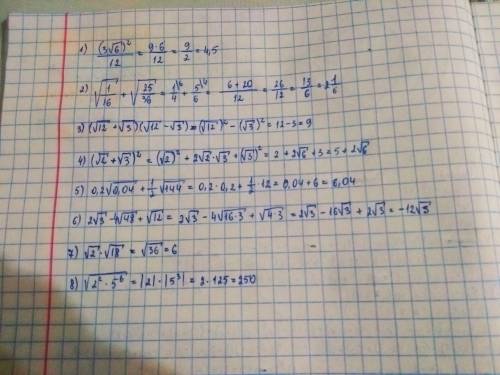 1) (3√6)²/12 = 9·6/12 = 9/2 = 4,5
2) √(1/16) + √(25/36) = 1/4 \6 + 5/6 \4 = (6+20)/12 = 26/12 = 13/6 = 2 1/6
3) (√12 + √3)(√12 - √3) = (√12)² - (√3)² = 12-3 = 9
4) (√2 + √3)² = (√2)² + 2√2·√3 + (√3)² = 2 + 2√6 + 3 = 5 + 2√6
5) 0,2√0,04 + 1/2 √144 = 0,2·0,2 + 1/2·12 = 0,04 + 6 = 6,04
6) 2√3 - 4√48 + √12 = 2√3 - 4√16·3 + √4·3 = 2√3 - 16√3 + 2√3 = -12√3
7) √2·√18 = √36 = 6
8) √2²·5⁻⁶ = |2|·|5³| = 2·125 = 250